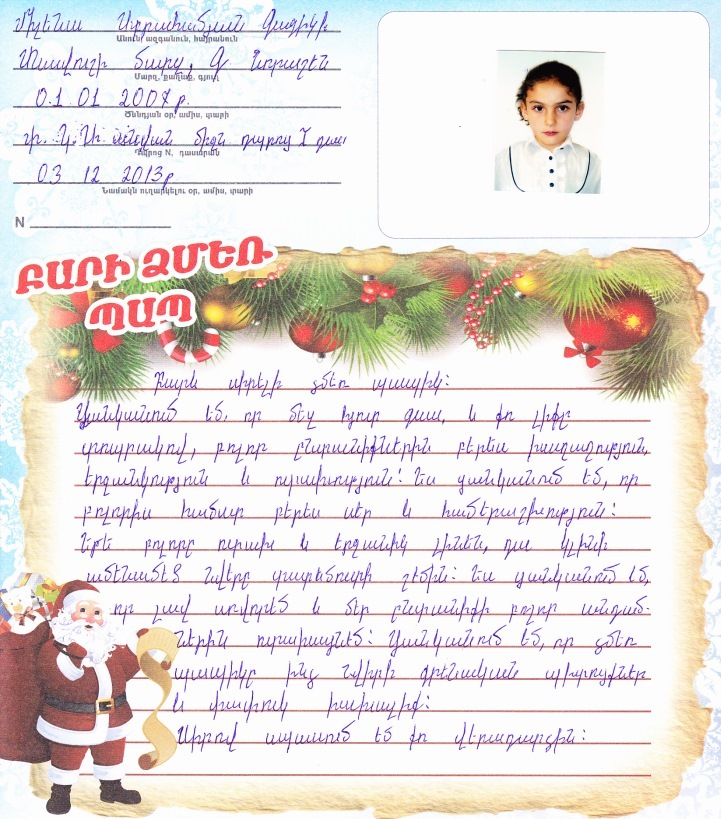 Միլենա Աբրահամյան Գագիկի
Անուն, ազգանուն, հայրանուն
Տավուշի մարզ, Գ. Նորաշեն
Մարզ, քաղաք, գյուղ
01 01 2007թ.
Ծննդյան օր, ամիս, տարի
միջն դպրոց I դաս
Դպրոց N, դասարան
03 12 2013թ
Նամակն ուղարկելու օր, ամիս, տարի
N
ԲԱՐԻ ՁՄԵՌ
ՊԱՊ
Բարև սիրելի ձմեռ պապիկ:
Ցանկանում եմ, որ մեզ հյուր գաս, և քո լիքը
տոպրակով, բոլոր ընտանիքներին բերես խաղաղություն,
երջանկություն և ուրախություն: Ես ցանկանում եմ, որ
բոլորիս համար բերես սեր և համերաշխություն:
Եթե բոլորը ուրախ և երջանիկ լինեն, դա կլինի
ամենամեծ նվերը տատիկիս շեմին: Ես ցանկանում եմ,
որ լավ սովորեմ և մեր ընտանիքի բոլոր անդամ-
ներին ուրախացնեմ: Ցանկանում եմ, որ ձմեռ
պապիկը ինձ նվիրի գրենական պիտույքներ
և փափուկ խաղալիք:
Սիրով սպասում եմ քո վերադարձին: